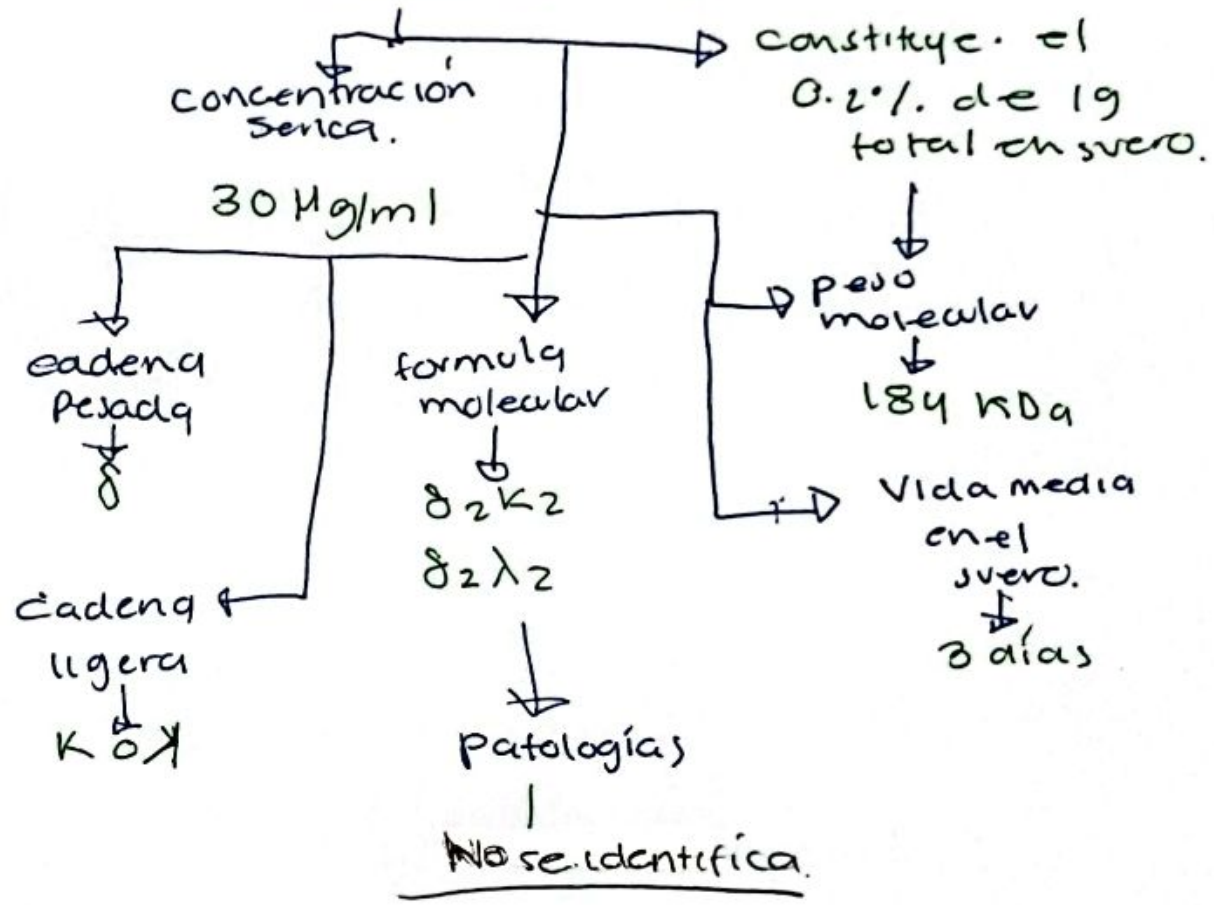 concentración
serica.
30 Mg/ml
constituye. el
0.2%. de Ig
total en suero.
peso
molecular
184 KDa
Vida media
en el
suero.
3 días
cadena
Pesada
δ
cadena
ligera
K o λ
formula
molecular
δ2K2
δ2λ2
Patologías
No se identifica.